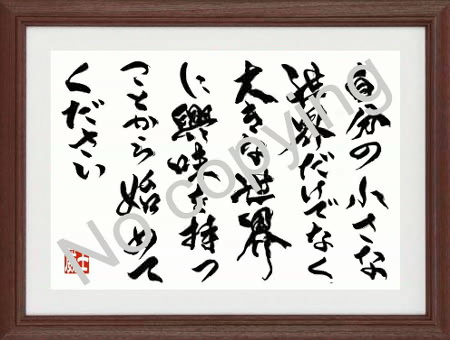 自分の小さな
世界だけでなく
大きな世界
に興味を持つ
ことから始めて
ください
No copying